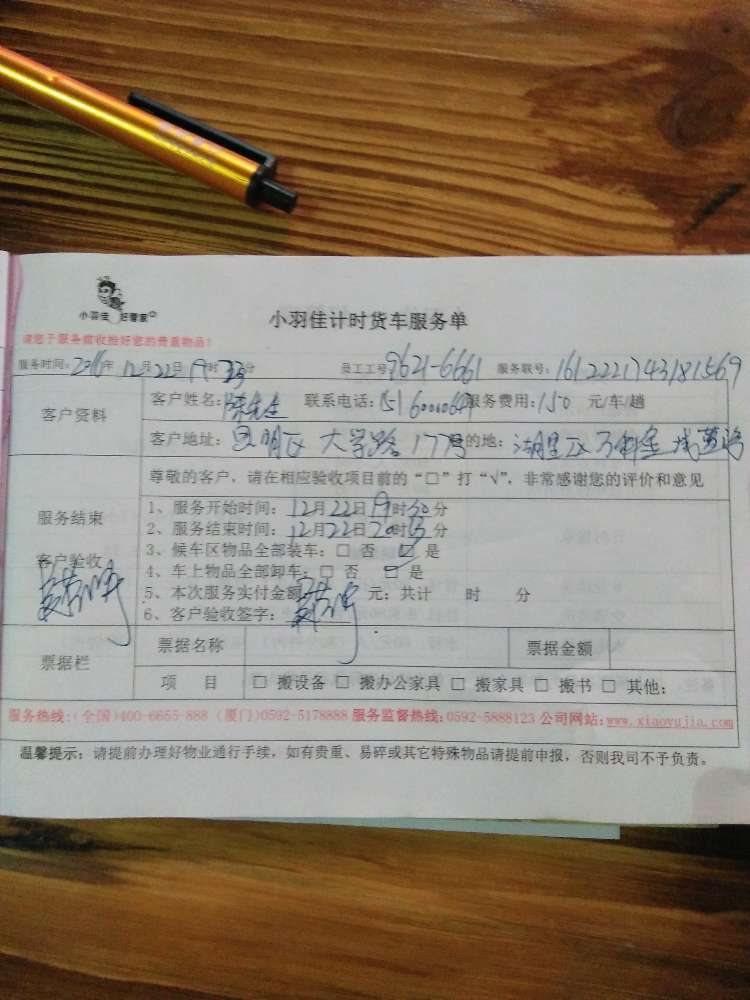 小羽佳 好管家
小羽佳计时货车服务单
请您于服务前收捡好您的贵重物品！
服务时间：2016年12月22日19时33分 员工工号9621-6661 服务联号：161222174318​1569
客户资料
客户姓名：陈先生 联系电话： 服务费用：150 元/车/趟
客户地址：思明区 大学路 177号 目的地：湖里区
尊敬的客户，请在相应验收项目前的“□”打“√”，非常感谢您的评价和意见
服务结束
客户验收
1、服务开始时间：12月22日19时30分
2、服务结束时间：12月22日20时35分
3、候车区物品全部装车：□ 否 □ 是
4、车上物品全部卸车：□ 否 □ 是
5、本次服务实付金额 元；共计 时 分
6、客户验收签字：
票据栏
票据名称 票据金额
项 目 □ 搬设备 □ 搬办公家具 □ 搬家具 □ 搬书 □ 其他：
服务热线：(全国)400-6655-888 (厦门)0592-5178888 服务监督热线：0592-5888123 公司网站：www.xiaoyujia.com
温馨提示：请提前办理好物业通行手续，如有贵重、易碎或其它特殊物品请提前申报，否则我司不予负责。